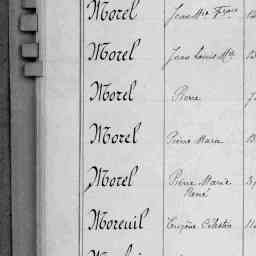 Morel Jean Mie Franç
Morel Jean Louis Mie
Morel Pierre
Morel Pierre Marie
Morel Pierre Marie
René
Moreuil Eugène Célestin